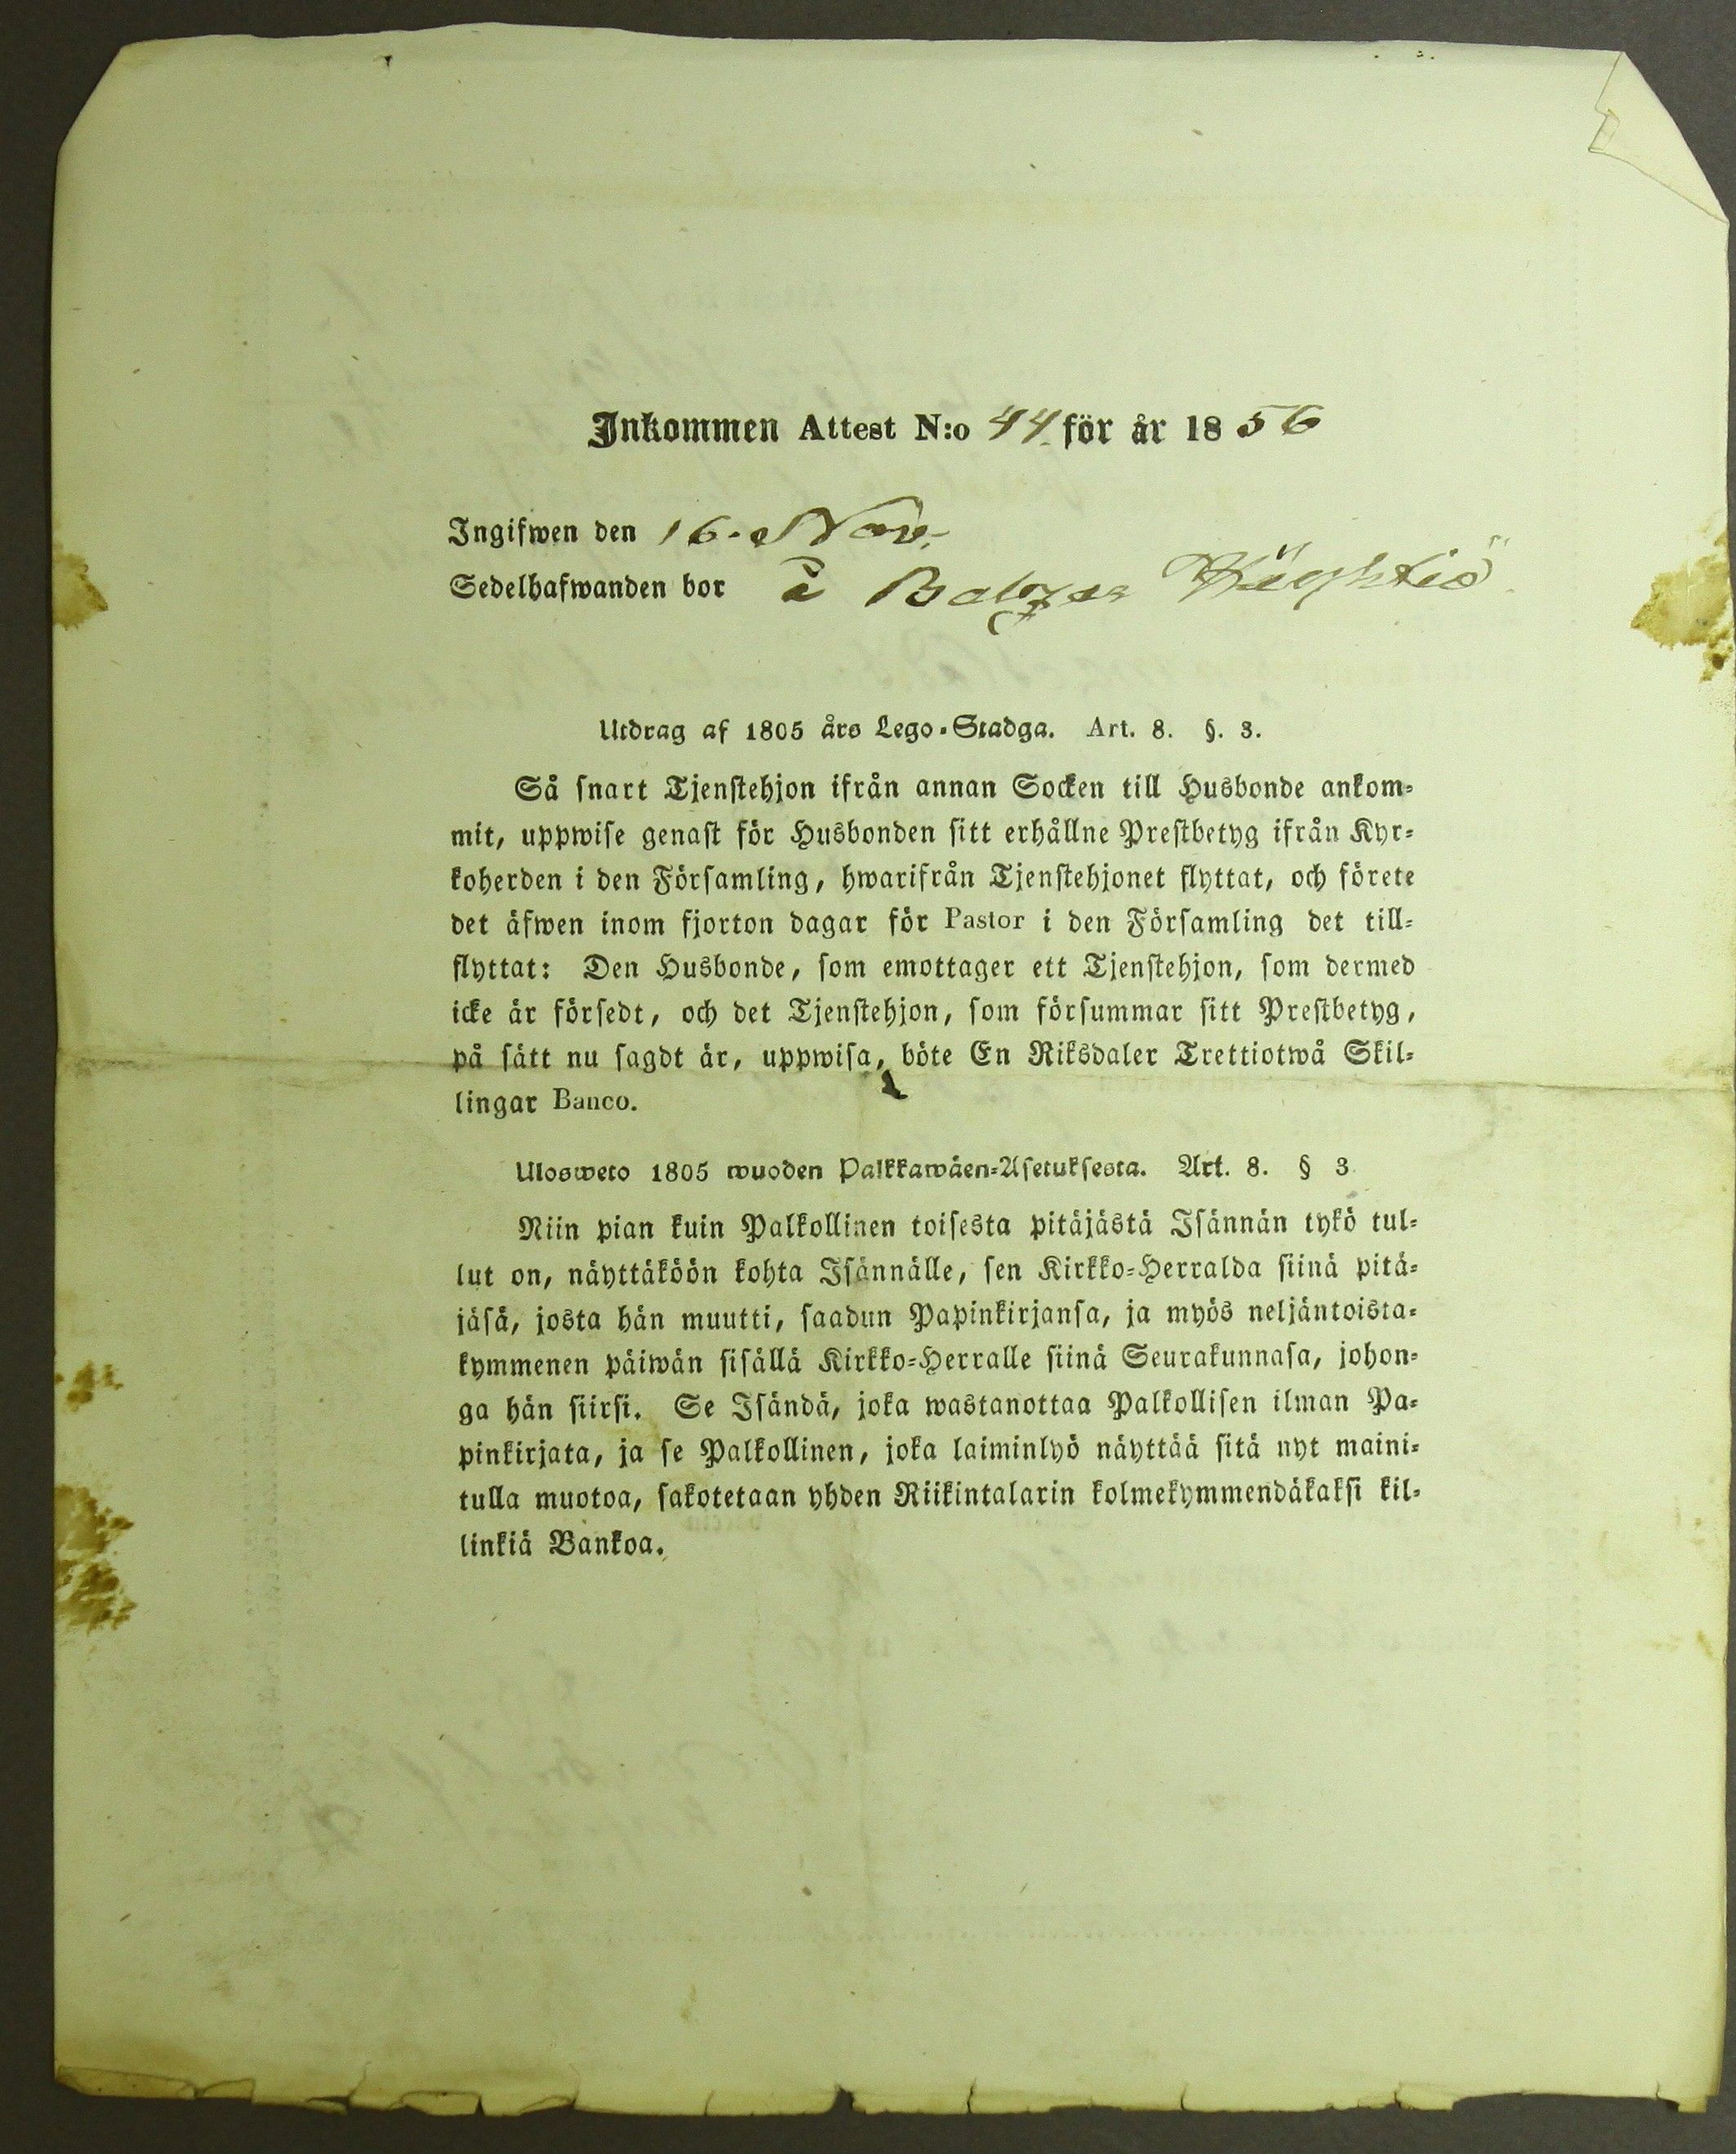 Inkommen Attest N:o 44. för år 1856
Ingifwen den 16. Nov.
Sedelhafwanden bor å
Utdrag af 1805 års Lego-Stadga. Art. 8. §. 3.
Så snart Tjenstehjon ifrån annan Socken till Husbonde ankom-
mit, uppwise genast för Husbonden sitt erhållne Prestbetyg ifrån Kyr-
koherden i den Församling, hwarifrån Tjenstehjonet flyttat, och förete
det äfwen inom fjorton dagar för Pastor i den Församling det till-
flyttat: Den Husbonde, som emottager ett Tjenstehjon, som dermed
icke är försedt, och det Tjenstehjon, som försummar sitt Prestbetyg,
på sätt nu sagdt är, uppwisa, böte En Riksdaler Trettiotwå Skil-
lingar Banco.
Ulosweto 1805 wuoden Palkkawäen-Asetuksesta. Art. 8. § 3
Niin pian kuin Palkollinen toisesta pitäjästä Isännän tykö tul-
lut on, näyttäköön kohta Isännälle, sen Kirkko-Herralda siinä pitä-
jäsä, josta hän muutti, saadun Papinkirjansa, ja myös neljäntoista-
kymmenen päiwän sisällä Kirkko-Herralle siinä Seurakunnasa, johon-
ga hän siirsi. Se Isändä, joka wastanottaa Palkollisen ilman Pa-
pinkirjata, ja se Palkollinen, joka laiminlyö näyttää sitä nyt maini-
tulla muotoa, sakotetaan yhden Riikintalarin kolmekymmendäkaksi kil-
linkiä Bankoa.